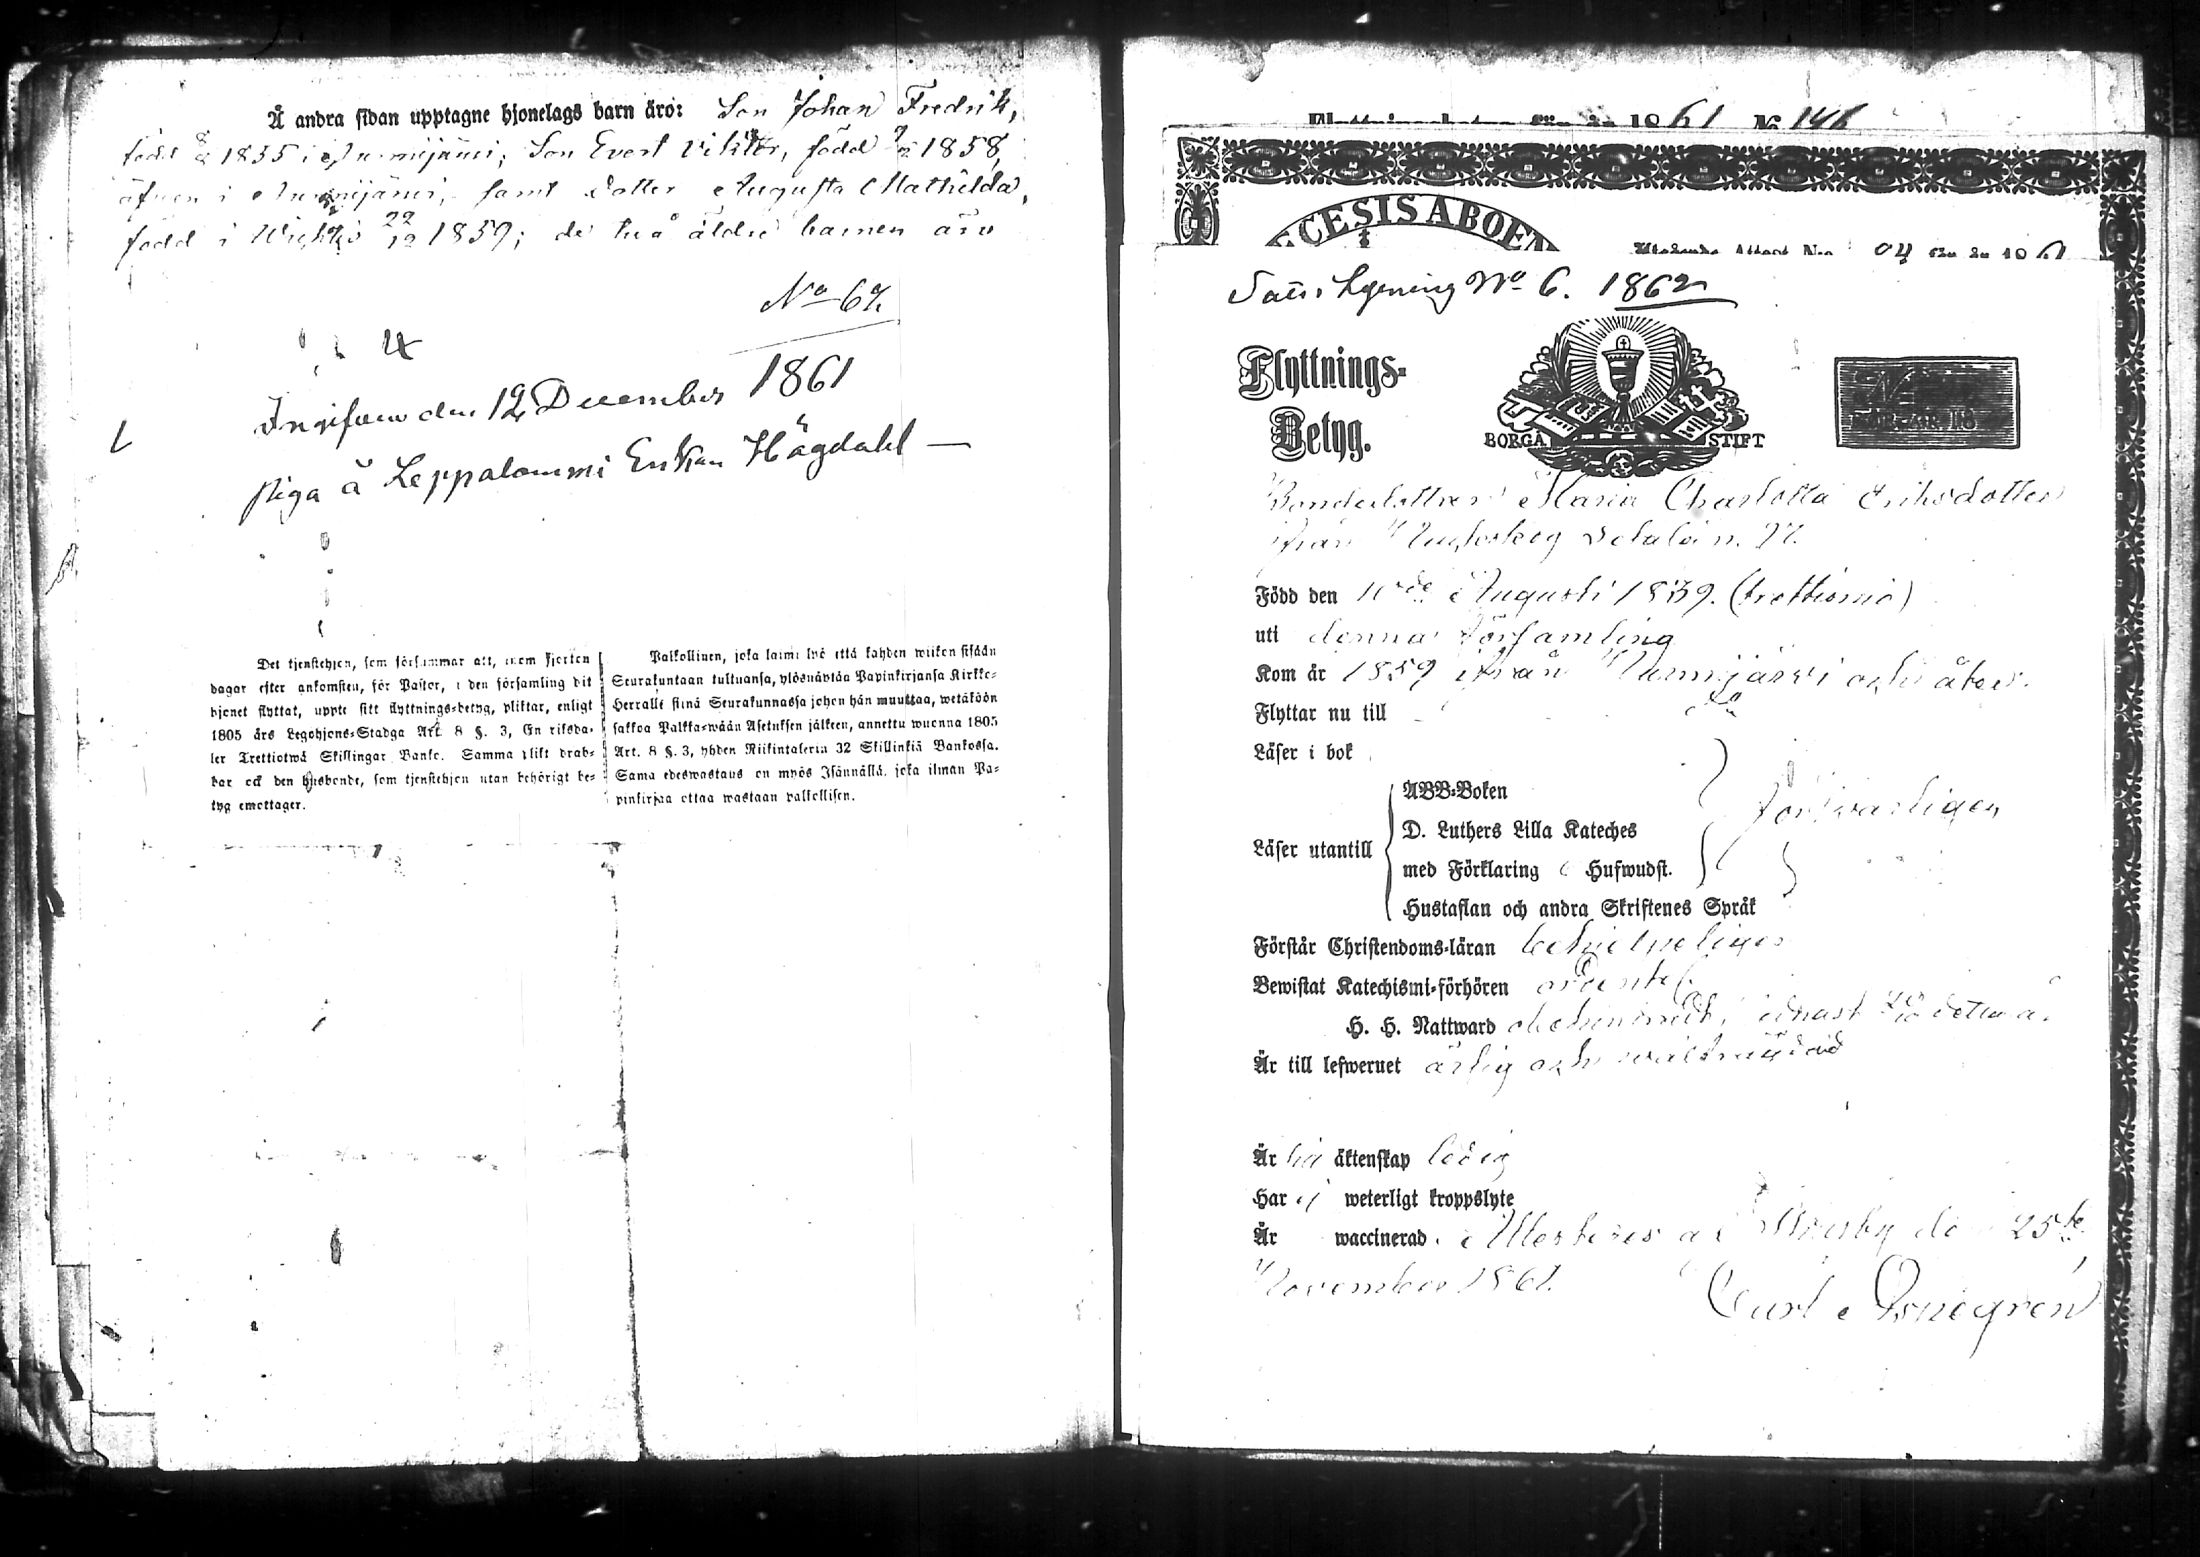 Å andra sidan upptagne hjonelags barn äro: Son Johan Fredrik,
född 1855 i Nummijärvi, Son Evert Viktor, född 1858,
äfven i Nummijärvi, samt dotter Augusta Mathilda,
född i Wichtis 22/12 1859; de två äldre barnen äro
No 67
4
Ingifven den 12 December 1861
Piga å Leppalammi Hägdahl
Det tjenstehjon, som försummar att, inom fjorton
dagar efter ankomsten, för Pastor, i den församling dit
hjonet flyttat, uppte sitt flyttnings-betyg, pliktar, enligt
1805 års Legohjons-Stadga Art. 8 §. 3, En riksda-
ler Trettiotwå Skillingar Banko. Samma plikt drab-
bar ock den husbonde, som tjenstehjon utan behörigt be-
tyg emottager.
Palkollinen, joka laimi lyö että kahden wiikon sisään
Seurakuntaan tultuansa, ylösnäyttää Papinkirjansa Kirkko-
Herralle siinä Seurakunnassa johon hän muuttaa, wetäköön
sakkoa Palkka-wään Asetuksen jälkeen, annettu wuonna 1805
Art. 8 §. 3, yhden Riikintalerin 32 Skillinkiä Bankossa.
Sama edeswastaus on myös Isännällä, joka ilman Pa-
pinkirjaa ottaa wastaan palkollisen.
Flyttningsbetyg för år 1861 No 146
ECESIS ABOEN
Utgående Attest N:o 04 för år 1861
No 6. 1862
Flyttnings-
Betyg.
BORGÅ STIFT
Bondedottren Maria Charlotta Eriksdotter
ifrån
Född den 10de Augusti 1839. (trettionio)
uti denna församling
Kom år 1859 ifrån Nummijärvi och åter
Flyttar nu till
Läser i bok
ABB-Boken
D. Luthers Lilla Kateches
Läser utantill
försvarligen
med Förklaring Hufwudst.
Hustaflan och andra Skriftenes Språk
Förstår Christendoms-läran behjelpeligen
Bewistat Katechismi-förhören ordentel.
H. H. Nattward sednast detta år
Är till lefwernet ärlig och wälfräjdad
Är till äktenskap ledig
Har ej weterligt kroppslyte
Är waccinerad. Attesteras den 25te
November 1861.
Carl